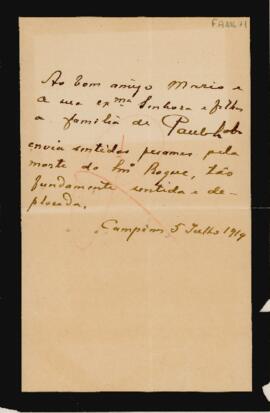 Ao bom amigo Mario e
a sua exma Senhora e filhos
a familia de Paulo Lobo
envia sentidos pesames pela
morte do Snr Roque, tão
fundamente sentida e de-
plorada.
Campinas 5 Julho 1919